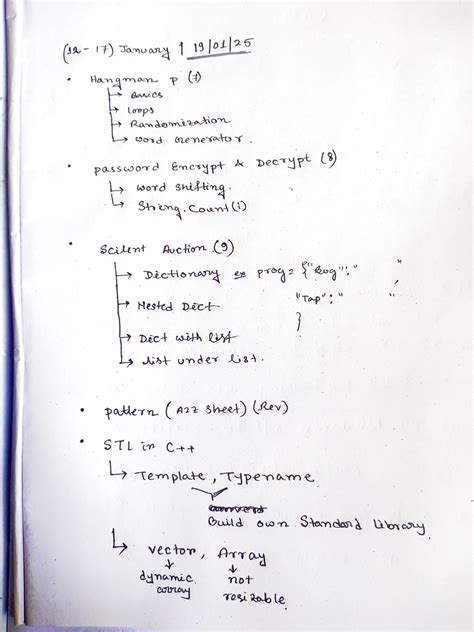 (12 - 17) January | 19/01/25
• Hangman p (7)
↳ Basics
↳ loops
↳ Randomization
↳ word Generator.
• password Encrypt & Decrypt (8)
↳ word shifting.
↳ String.Count(1)
• Scilent Auction (9)
→ Dictionary ex prog = {"Bug":" ",
→ Nested Dict "Tap":" "
}
→ Dict with list
→ list under list.
• pattern (A2Z sheet) (Rev)
• STL in C++
↳ Template, Typename
Build own Standard Library
↳ vector, Array
↓ ↓
dynamic not
array resizable